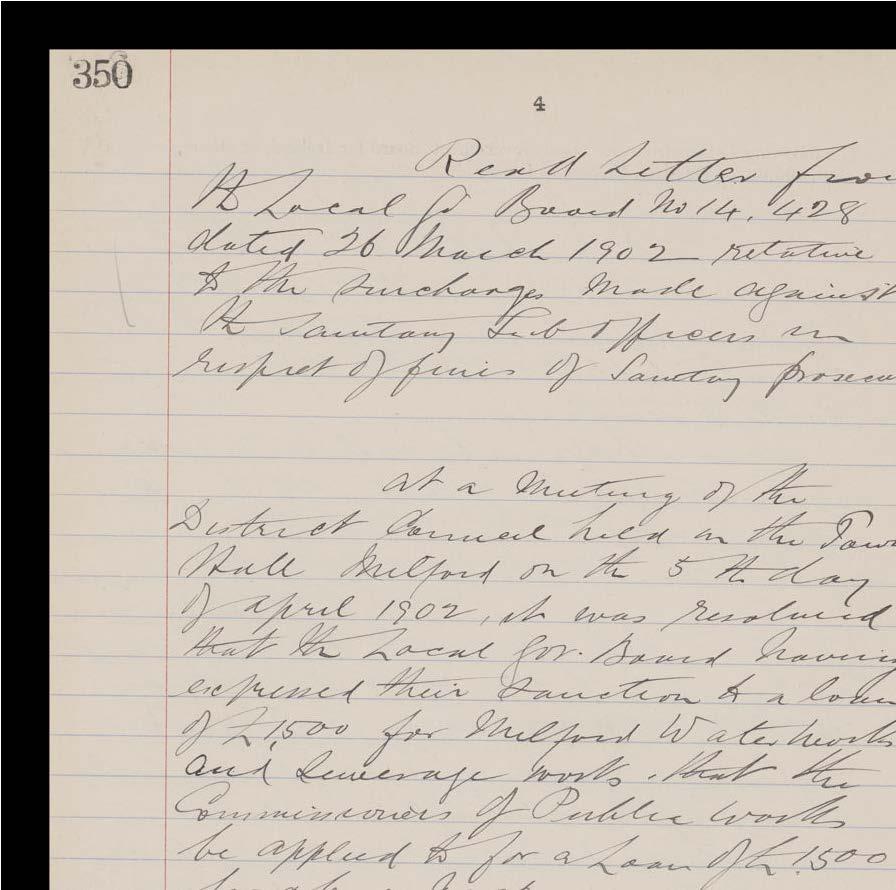 350
4
Read Letter from
the Local Gt Board No 14.428
dated 26 March 1902 relative
to the surcharges made against
the Sanitary Sub Officers in
respect of fines of Sanitary prosecu
at a meeting of the
District Council held in the Town
Hall Milford on the 5th day
of April 1902, it was resolved
that the Local Gov. Board having
expressed their sanction to a loan
of £1,500 for Milford Waterworks
and Sewerage works. that the
Commissioners of Public Works
be applied to for a Loan of £1500